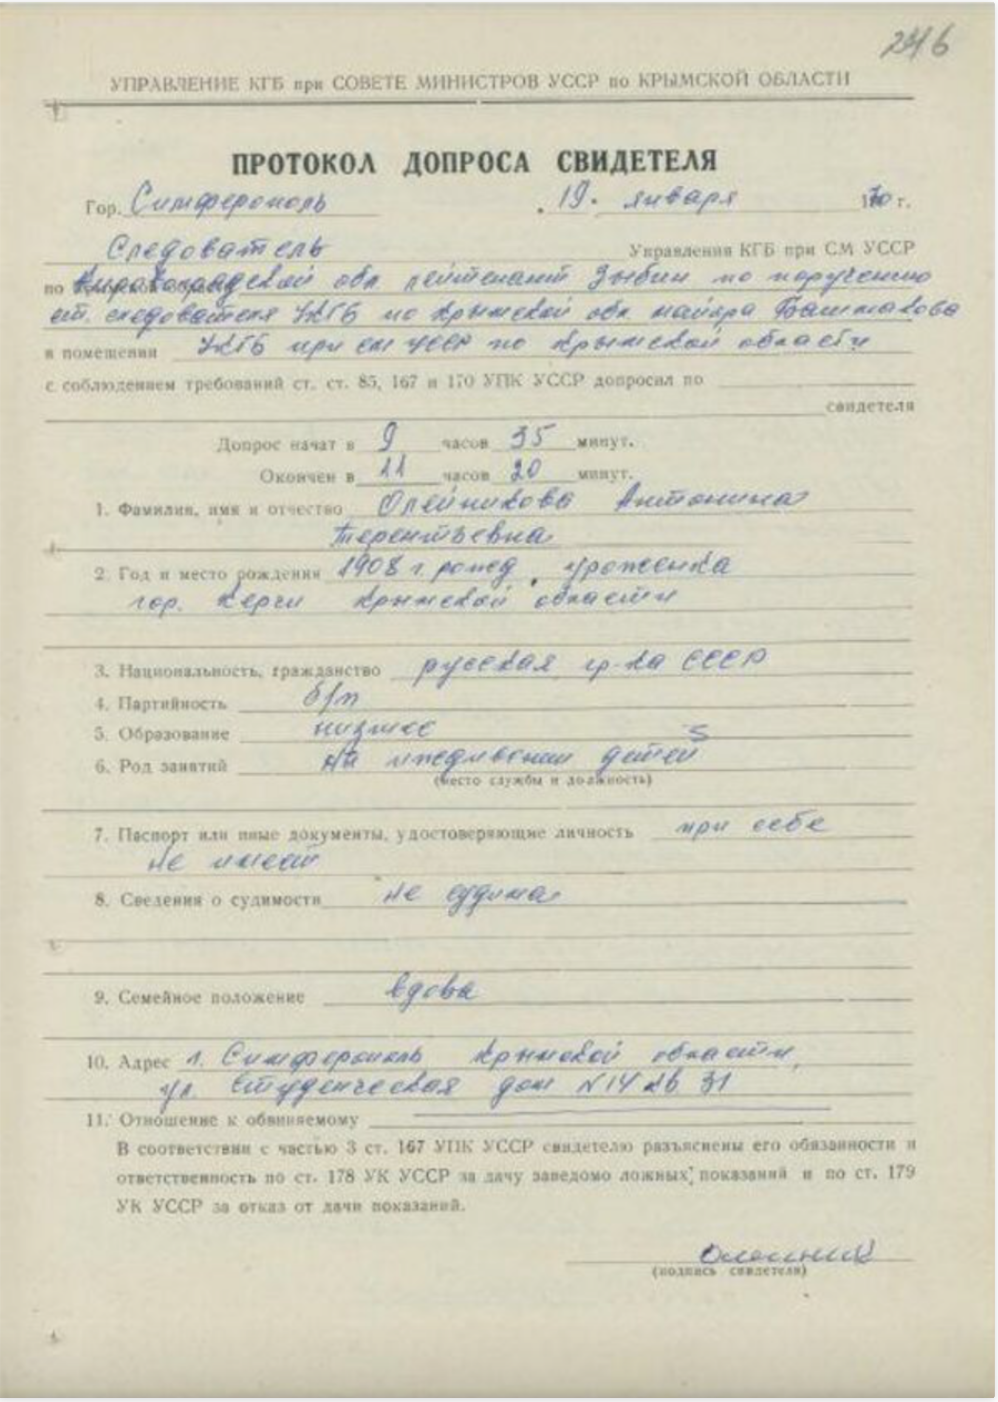 246
УПРАВЛЕНИЕ КГБ при СОВЕТЕ МИНИСТРОВ УССР по КРЫМСКОЙ ОБЛАСТИ
ПРОТОКОЛ ДОПРОСА СВИДЕТЕЛЯ
Гор. Симферополь 19. января 1970 г.
Следователь Управления КГБ при СМ УССР
по Кировоградской обл. лейтенант Зыбин по поручению
ст. следователя УКГБ по Крымской обл майора Башмакова
в помещении УКГБ при СМ УССР по Крымской области
с соблюдением требований ст. ст. 85, 167 и 170 УПК УССР допросил по
свидетеля
Допрос начат в 9 часов 35 минут.
Окончен в 11 часов 20 минут.
1. Фамилия, имя и отчество Олейникова Антонина
Терентьевна
2. Год и место рождения 1908 г. рожд, уроженка
гор. Керчи Крымской области
3. Национальность, гражданство русская гр-ка СССР
4. Партийность б/п
5. Образование низшее
6. Род занятий на иждивении детей
(место службы и должность)
7. Паспорт или иные документы, удостоверяющие личность при себе
не имеет
8. Сведения о судимости не судима
9. Семейное положение вдова
10. Адрес г. Симферополь Крымской области,
ул. Студенческая дом N 14 кв 31
11. Отношение к обвиняемому
В соответствии с частью 3 ст. 167 УПК УССР свидетелю разъяснены его обязанности и
ответственность по ст. 178 УК УССР за дачу заведомо ложных показаний и по ст. 179
УК УССР за отказ от дачи показаний.
(подпись свидетеля)